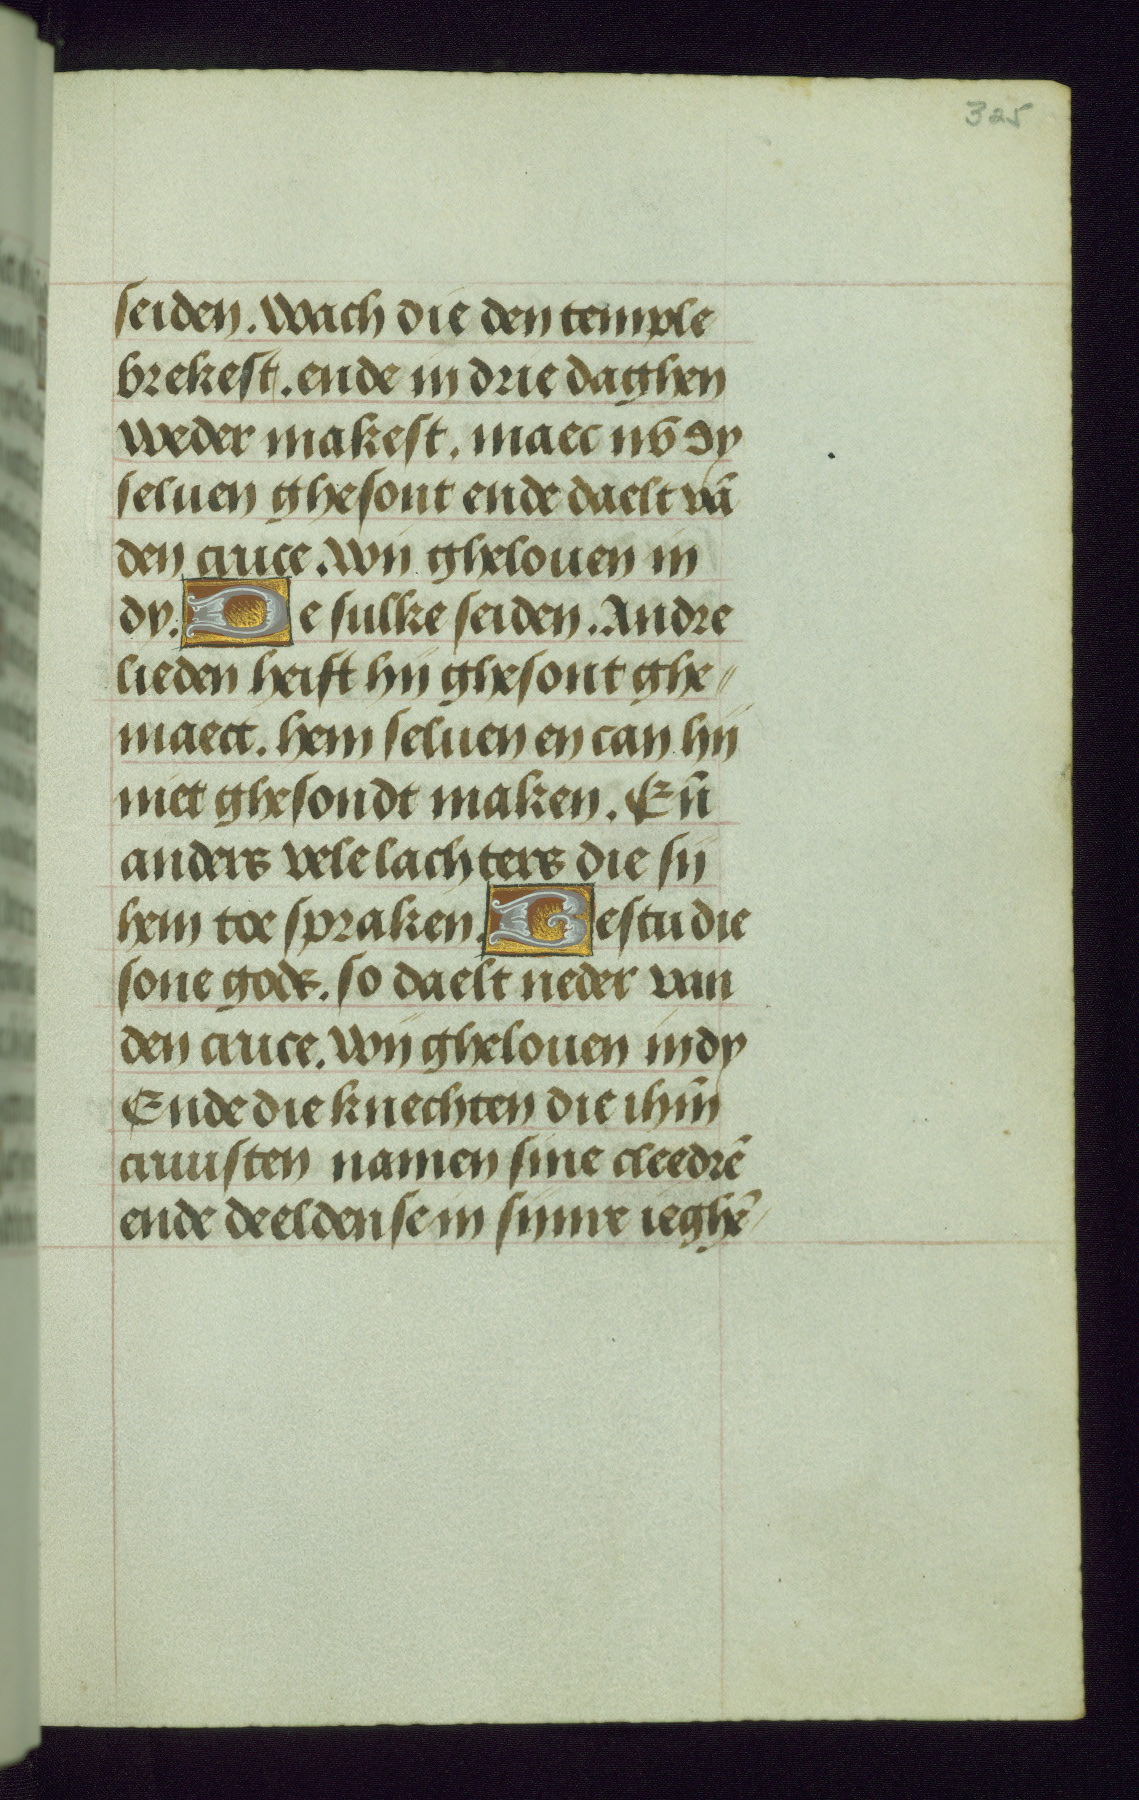 325
seiden. Wach die den temple
brekest. ende in drie daghen
weder makest. maec nv dy
seluen ghesont ende daelt vā
den cruce. Wij ghelouen in
dy. De sulke seiden. Andre
lieden heift hij ghesont ghe〃
maect. hem seluen en can hij
niet ghesondt maken. Eñ
anders vele lachters die sij
hem toe spraken. Bestu die
sone gods. so daelt neder van
den cruce. Wij ghelouen in dy
Ende die knechten die ihm̄
cruusten namen sine cleedrē
ende deelden se in sijnre ieghē